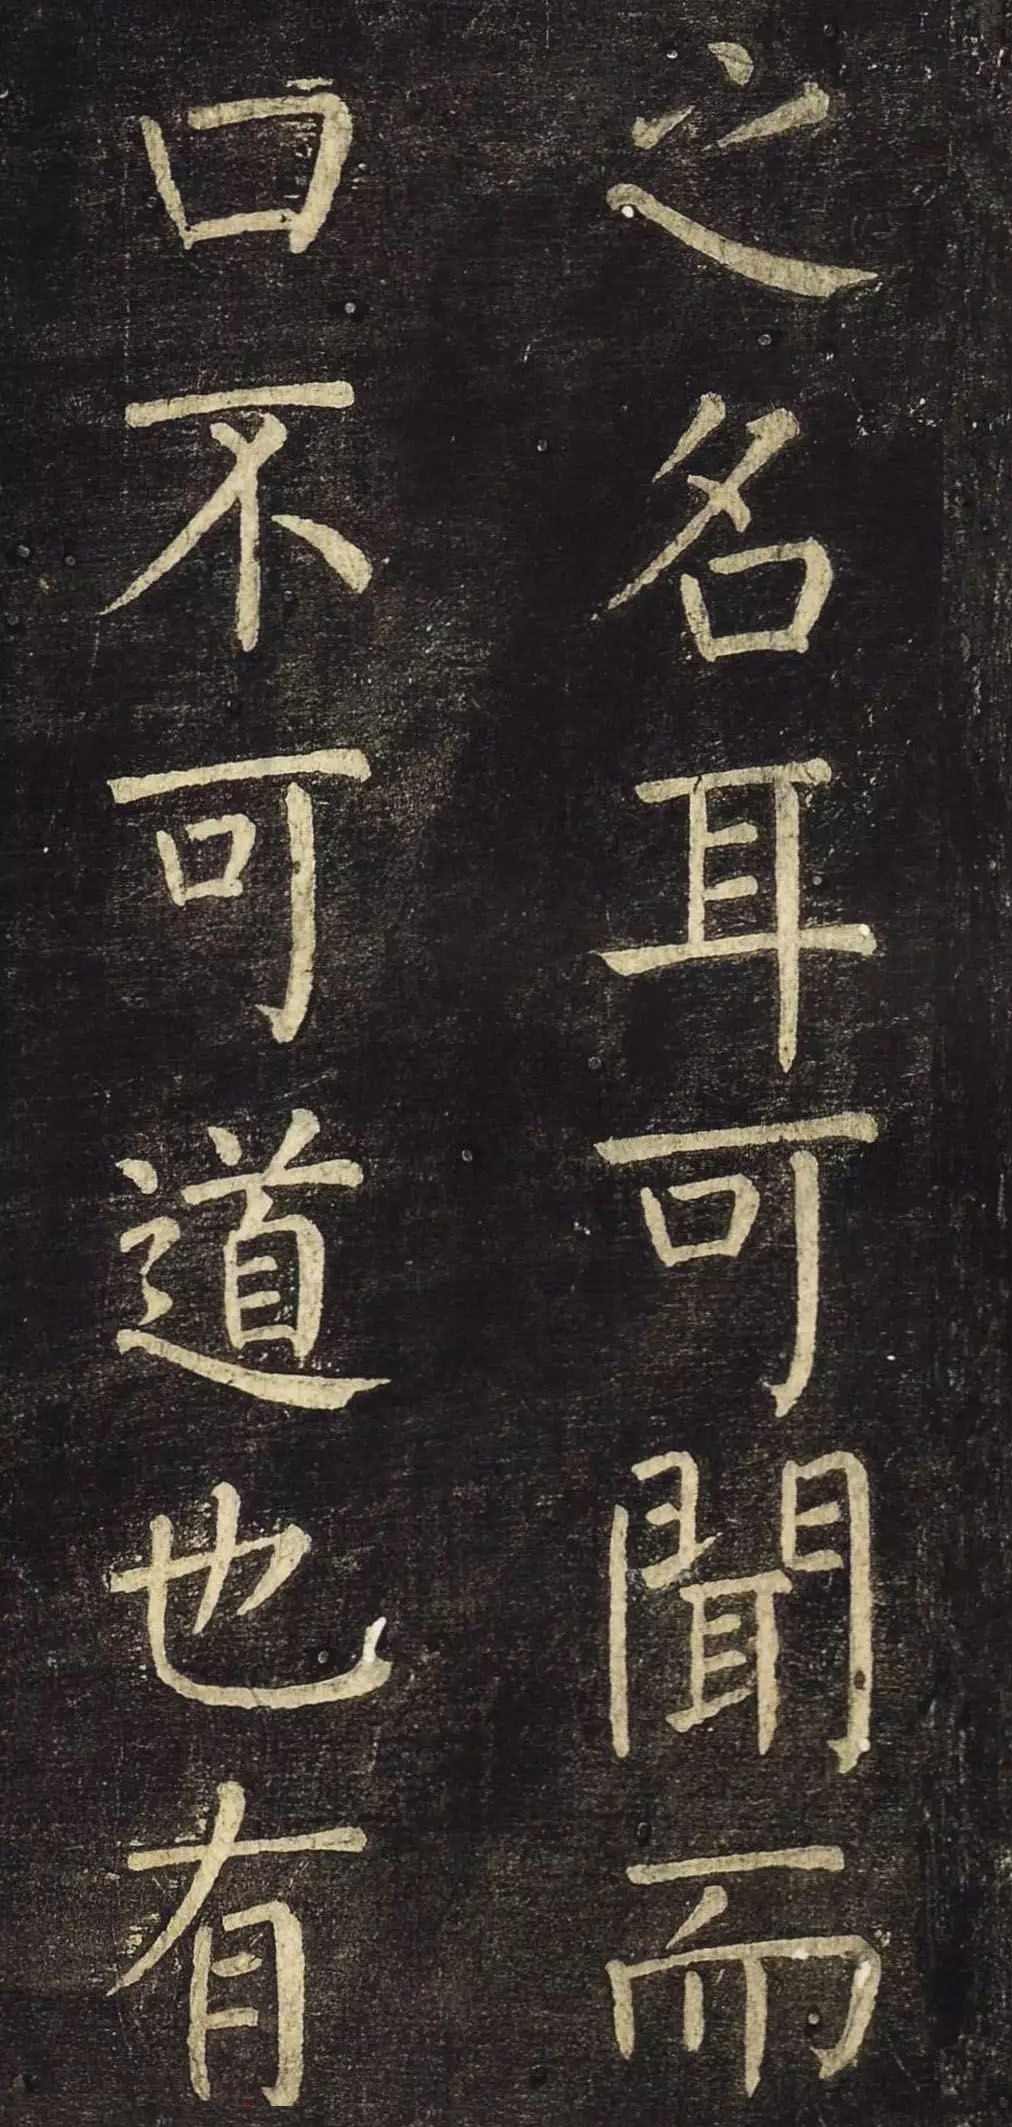 之名耳可聞而
口不可道也有